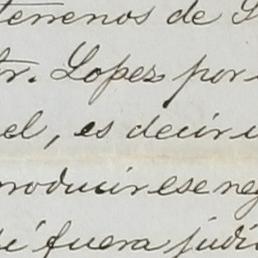 terrenos de S
tr. Lopez por
el, es decir
producir ese neg
fuera judic